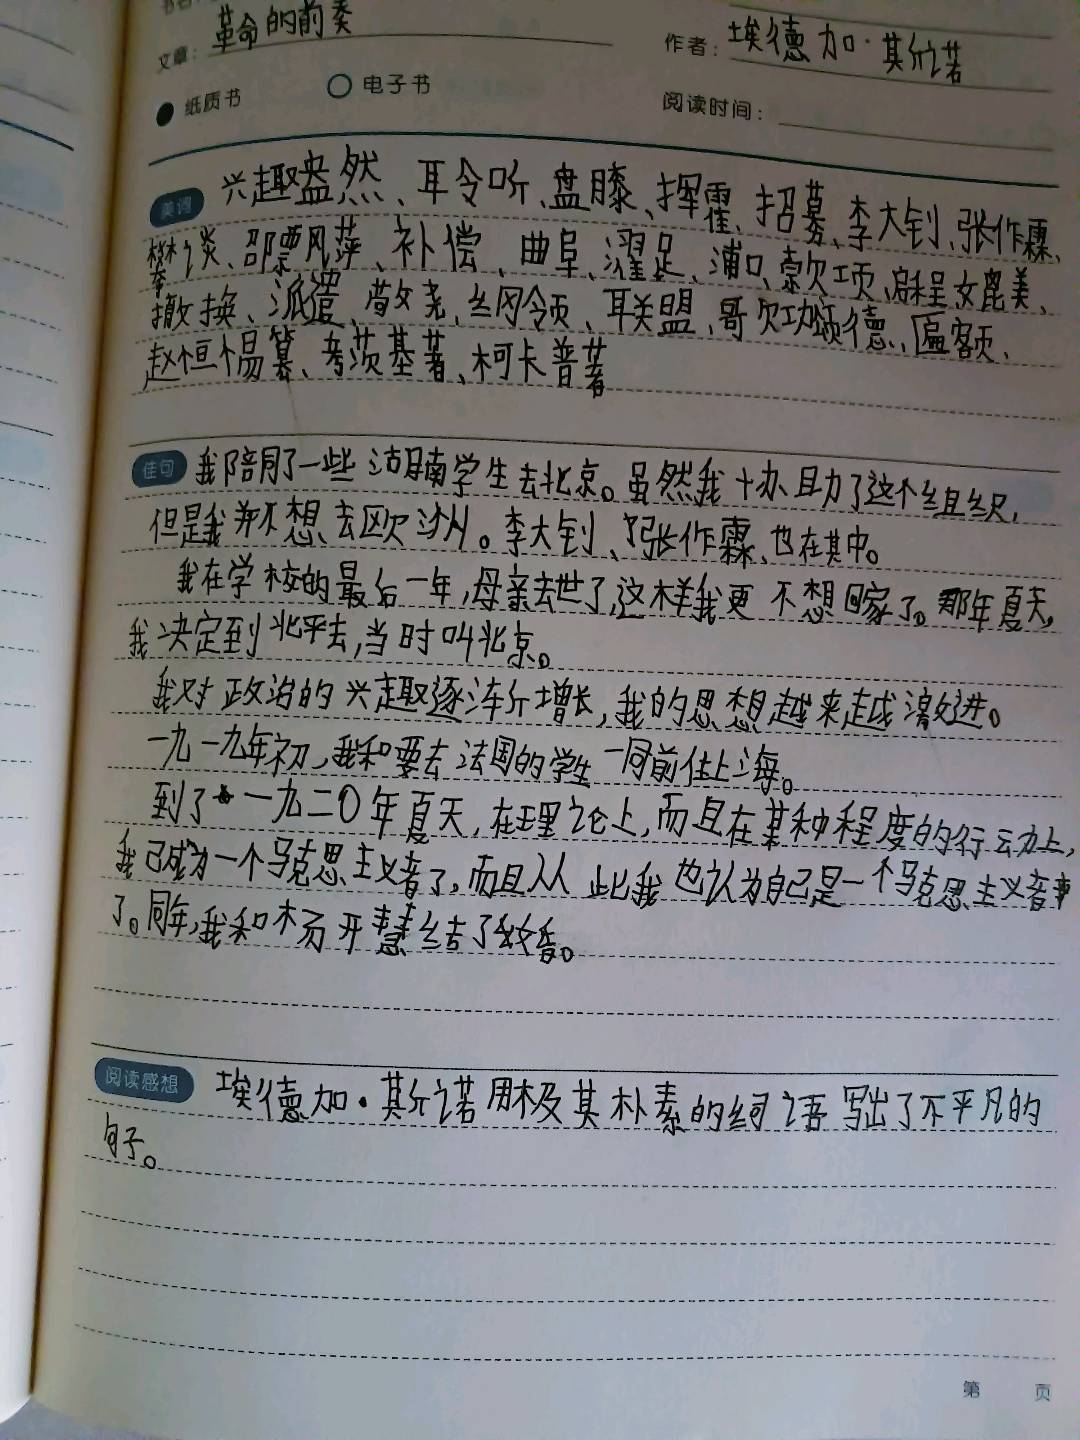 文章：革命的前奏
作者：埃德加·斯诺
纸质书 电子书
阅读时间：
美词 兴趣盎然、聆听、盘膝、挥霍、招募、李大钊、张作霖、
攀谈、邵飘萍、补偿、曲阜、濯足、浦口、款项、启程、媲美、
撤换、派遣、散尧、纲领、联盟、歌功颂德、匾额、
赵恒惕、考茨基著、柯卡普著
佳句 我陪同了一些湖南学生去北京。虽然我协助了这个组织，
但是我并不想去欧洲。李大钊、张作霖、也在其中。
我在学校的最后一年，母亲去世了，这样我更不想回家了。那年夏天，
我决定到北平去，当时叫北京。
我对政治的兴趣逐渐增长，我的思想越来越激进。
一九一九年初，我和要去法国的学生一同前往上海。
到了一九二〇年夏天，在理论上，而且在某种程度的行动上，
我已成为一个马克思主义者了，而且从此我也认为自己是一个马克思主义者
了。同年，我和杨开慧结了婚。
阅读感想 埃德加·斯诺用极其朴素的词语写出了不平凡的
句子。
第 页